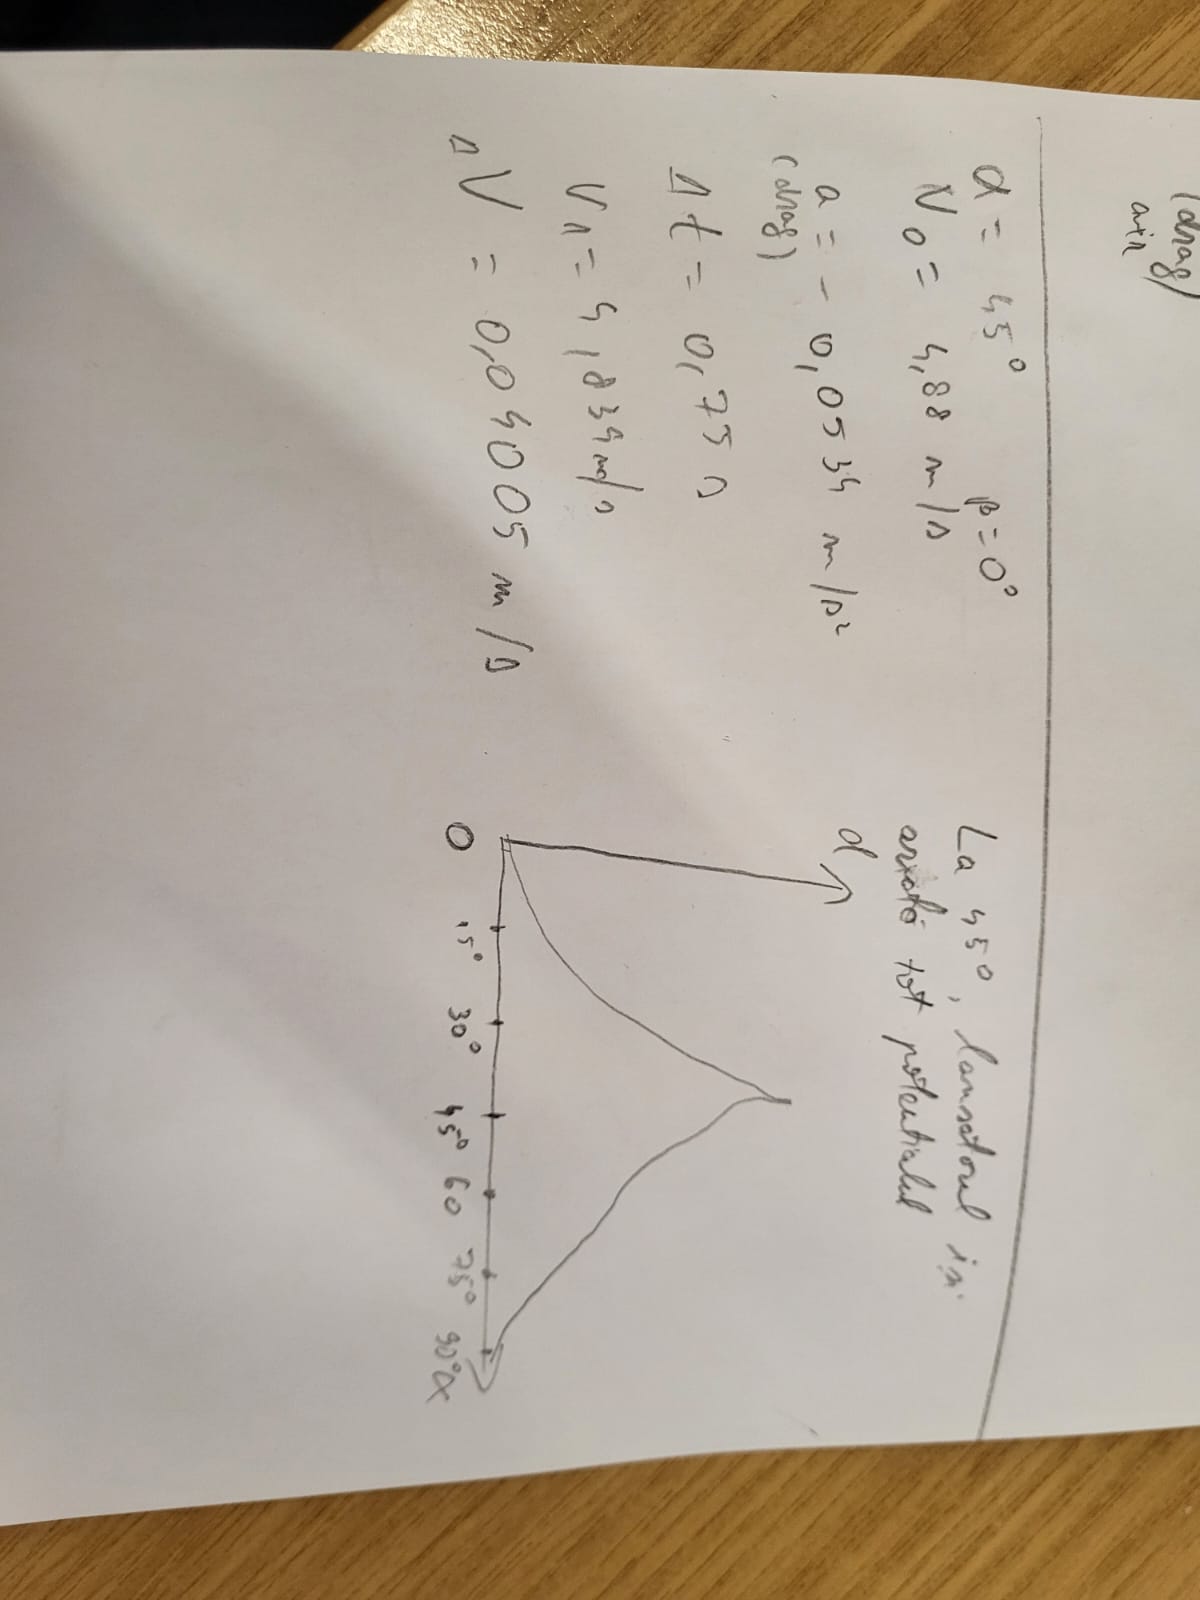 (drag)
α = 45° β = 0°
v0 = 4,88 m/s
a = - 0,0534 m/s²
(drag)
Δt = 0,75 s
v1 = 4,8394 m/s
ΔV = 0,04005 m/s
La 45°, lansatorul își
arată tot potențialul
d
0 15° 30° 45° 60 75° 90° α